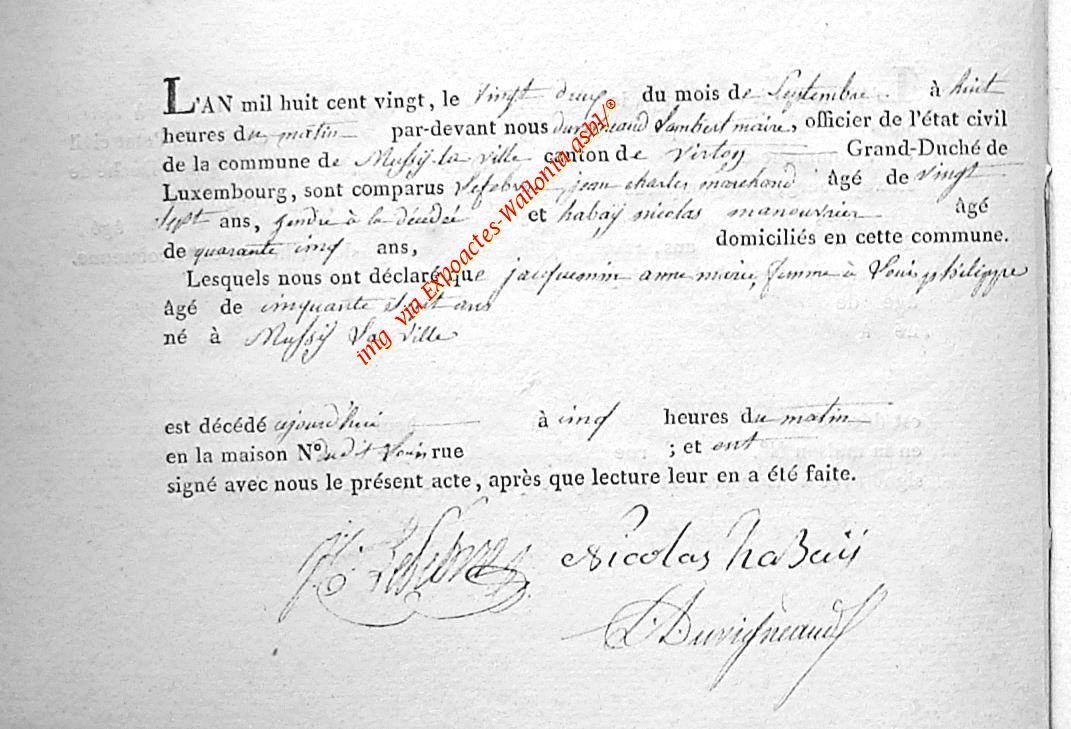 L'AN mil huit cent vingt, le vingt deux du mois de Septembre. à huit
heures du matin par-devant nous duvigneaud Lambert maire, officier de l'état civil
de la commune de Mussy la ville canton de virton Grand-Duché de
Luxembourg, sont comparus Lefebvre jean charles marchand âgé de vingt
sept ans, gendre à la décédée et habaÿ nicolas manouvrier âgé
de quarante cinq ans, domiciliés en cette commune.
Lesquels nous ont déclaré que jacquemin anne marie, femme à Louis philippe
âgé de cinquante ans
né à Mussy La Ville
est décédé ajourdhui à cinq heures du matin
en la maison N° dudit Louis rue ; et ont
signé avec nous le présent acte, après que lecture leur en a été faite.
Lefebvre Nicolas habaÿ
L. Duvigneaud
img via Expoactes-Wallonia.asbl/®